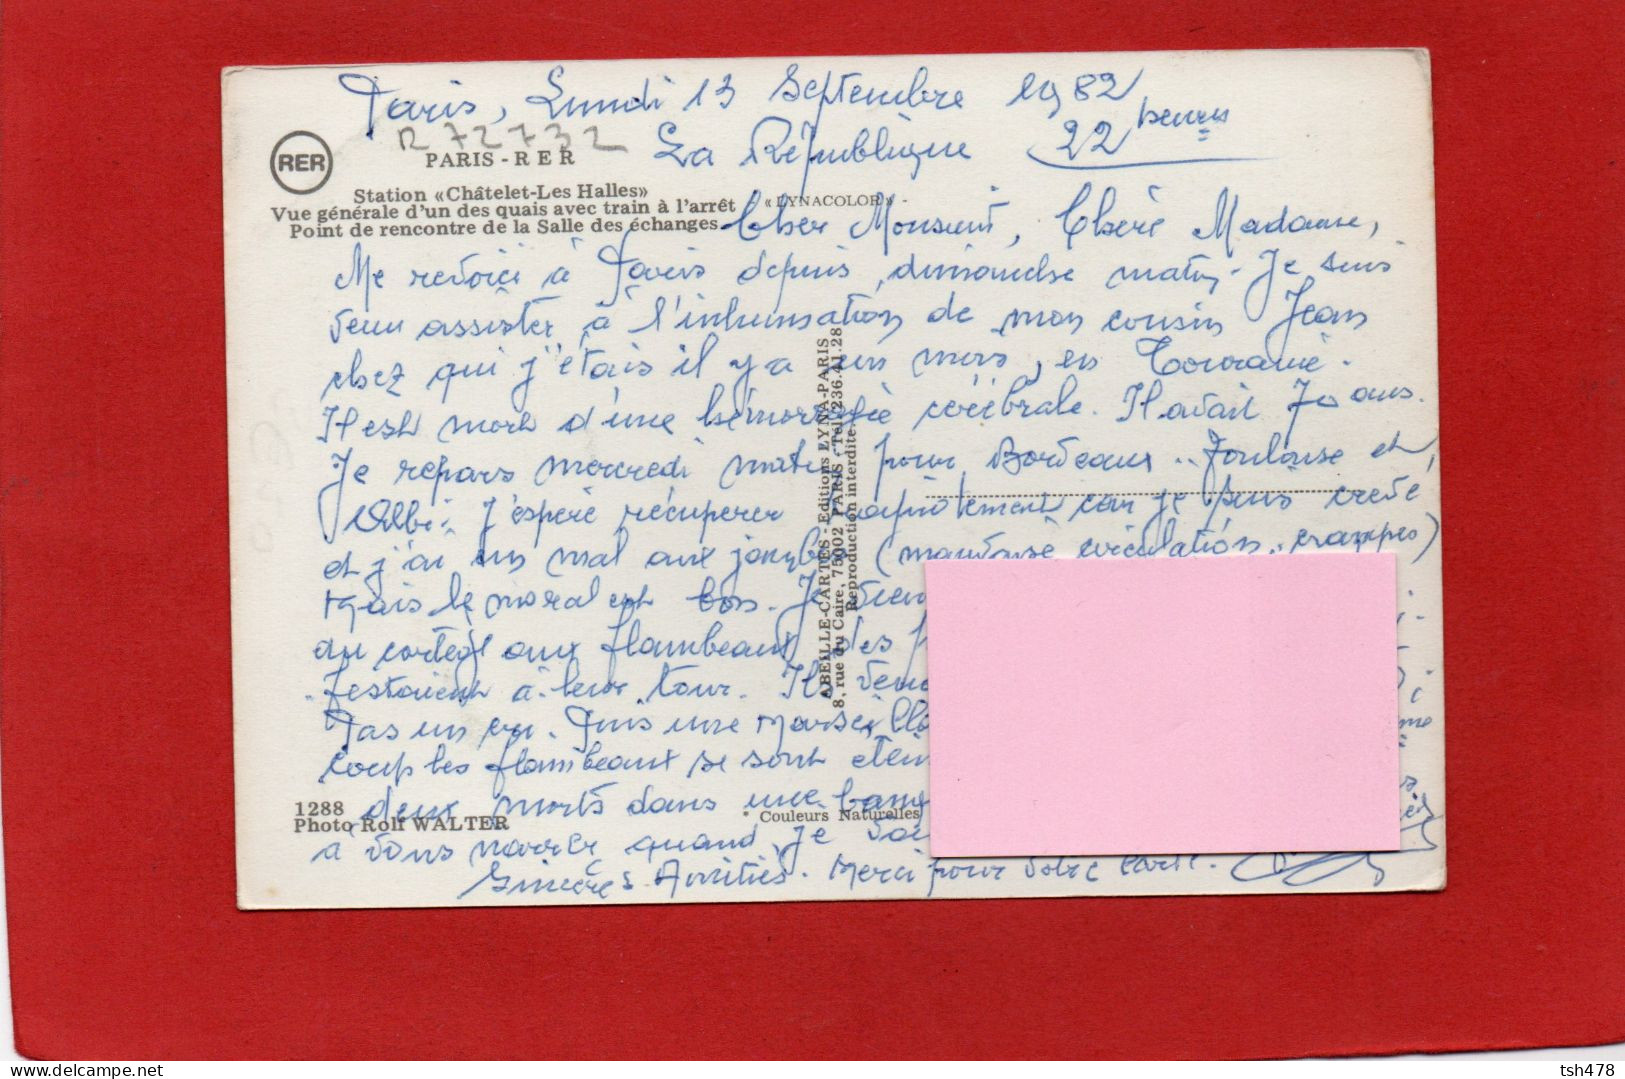 Paris, Lundi 13 Septembre 1982
R 72732
La République 22 heures
RER
PARIS - RER
Station «Châtelet-Les Halles»
Vue générale d'un des quais avec train à l'arrêt
«LYNACOLOR» -
Point de rencontre de la Salle des échanges
Cher Monsieur, Chère Madame,
Me revoici à Paris depuis dimanche matin. Je suis
venu assister à l'inhumation de mon cousin Jean
chez qui j'étais il y a un mois, en Touraine.
Il est mort d'une hémorragie cérébrale. Il avait 70 ans.
Je repars mercredi matin pour Bordeaux.. Toulouse et
Albi. J'espère récupérer rapidement car je suis crevé
et j'ai un mal aux jambes (mauvaise circulation.. crampes)
Mais le moral est bon. Je
au cortège aux flambeaux des
festoient à leur tour. Ils
Pas un cri. Puis une Marseill
coup les flambeaux se sont étein
deux morts dans une
à vous narrer quand je
Sincères Amitiés. Merci pour votre carte.
1288
Photo Rolf WALTER
* Couleurs Naturelles
ABEILLE-CARTES - Editions LYNA-PARIS
8, rue du Caire, 75002 PARIS - Tél. 236.41.28
Reproduction interdite.
tsh478
www.delcampe.net